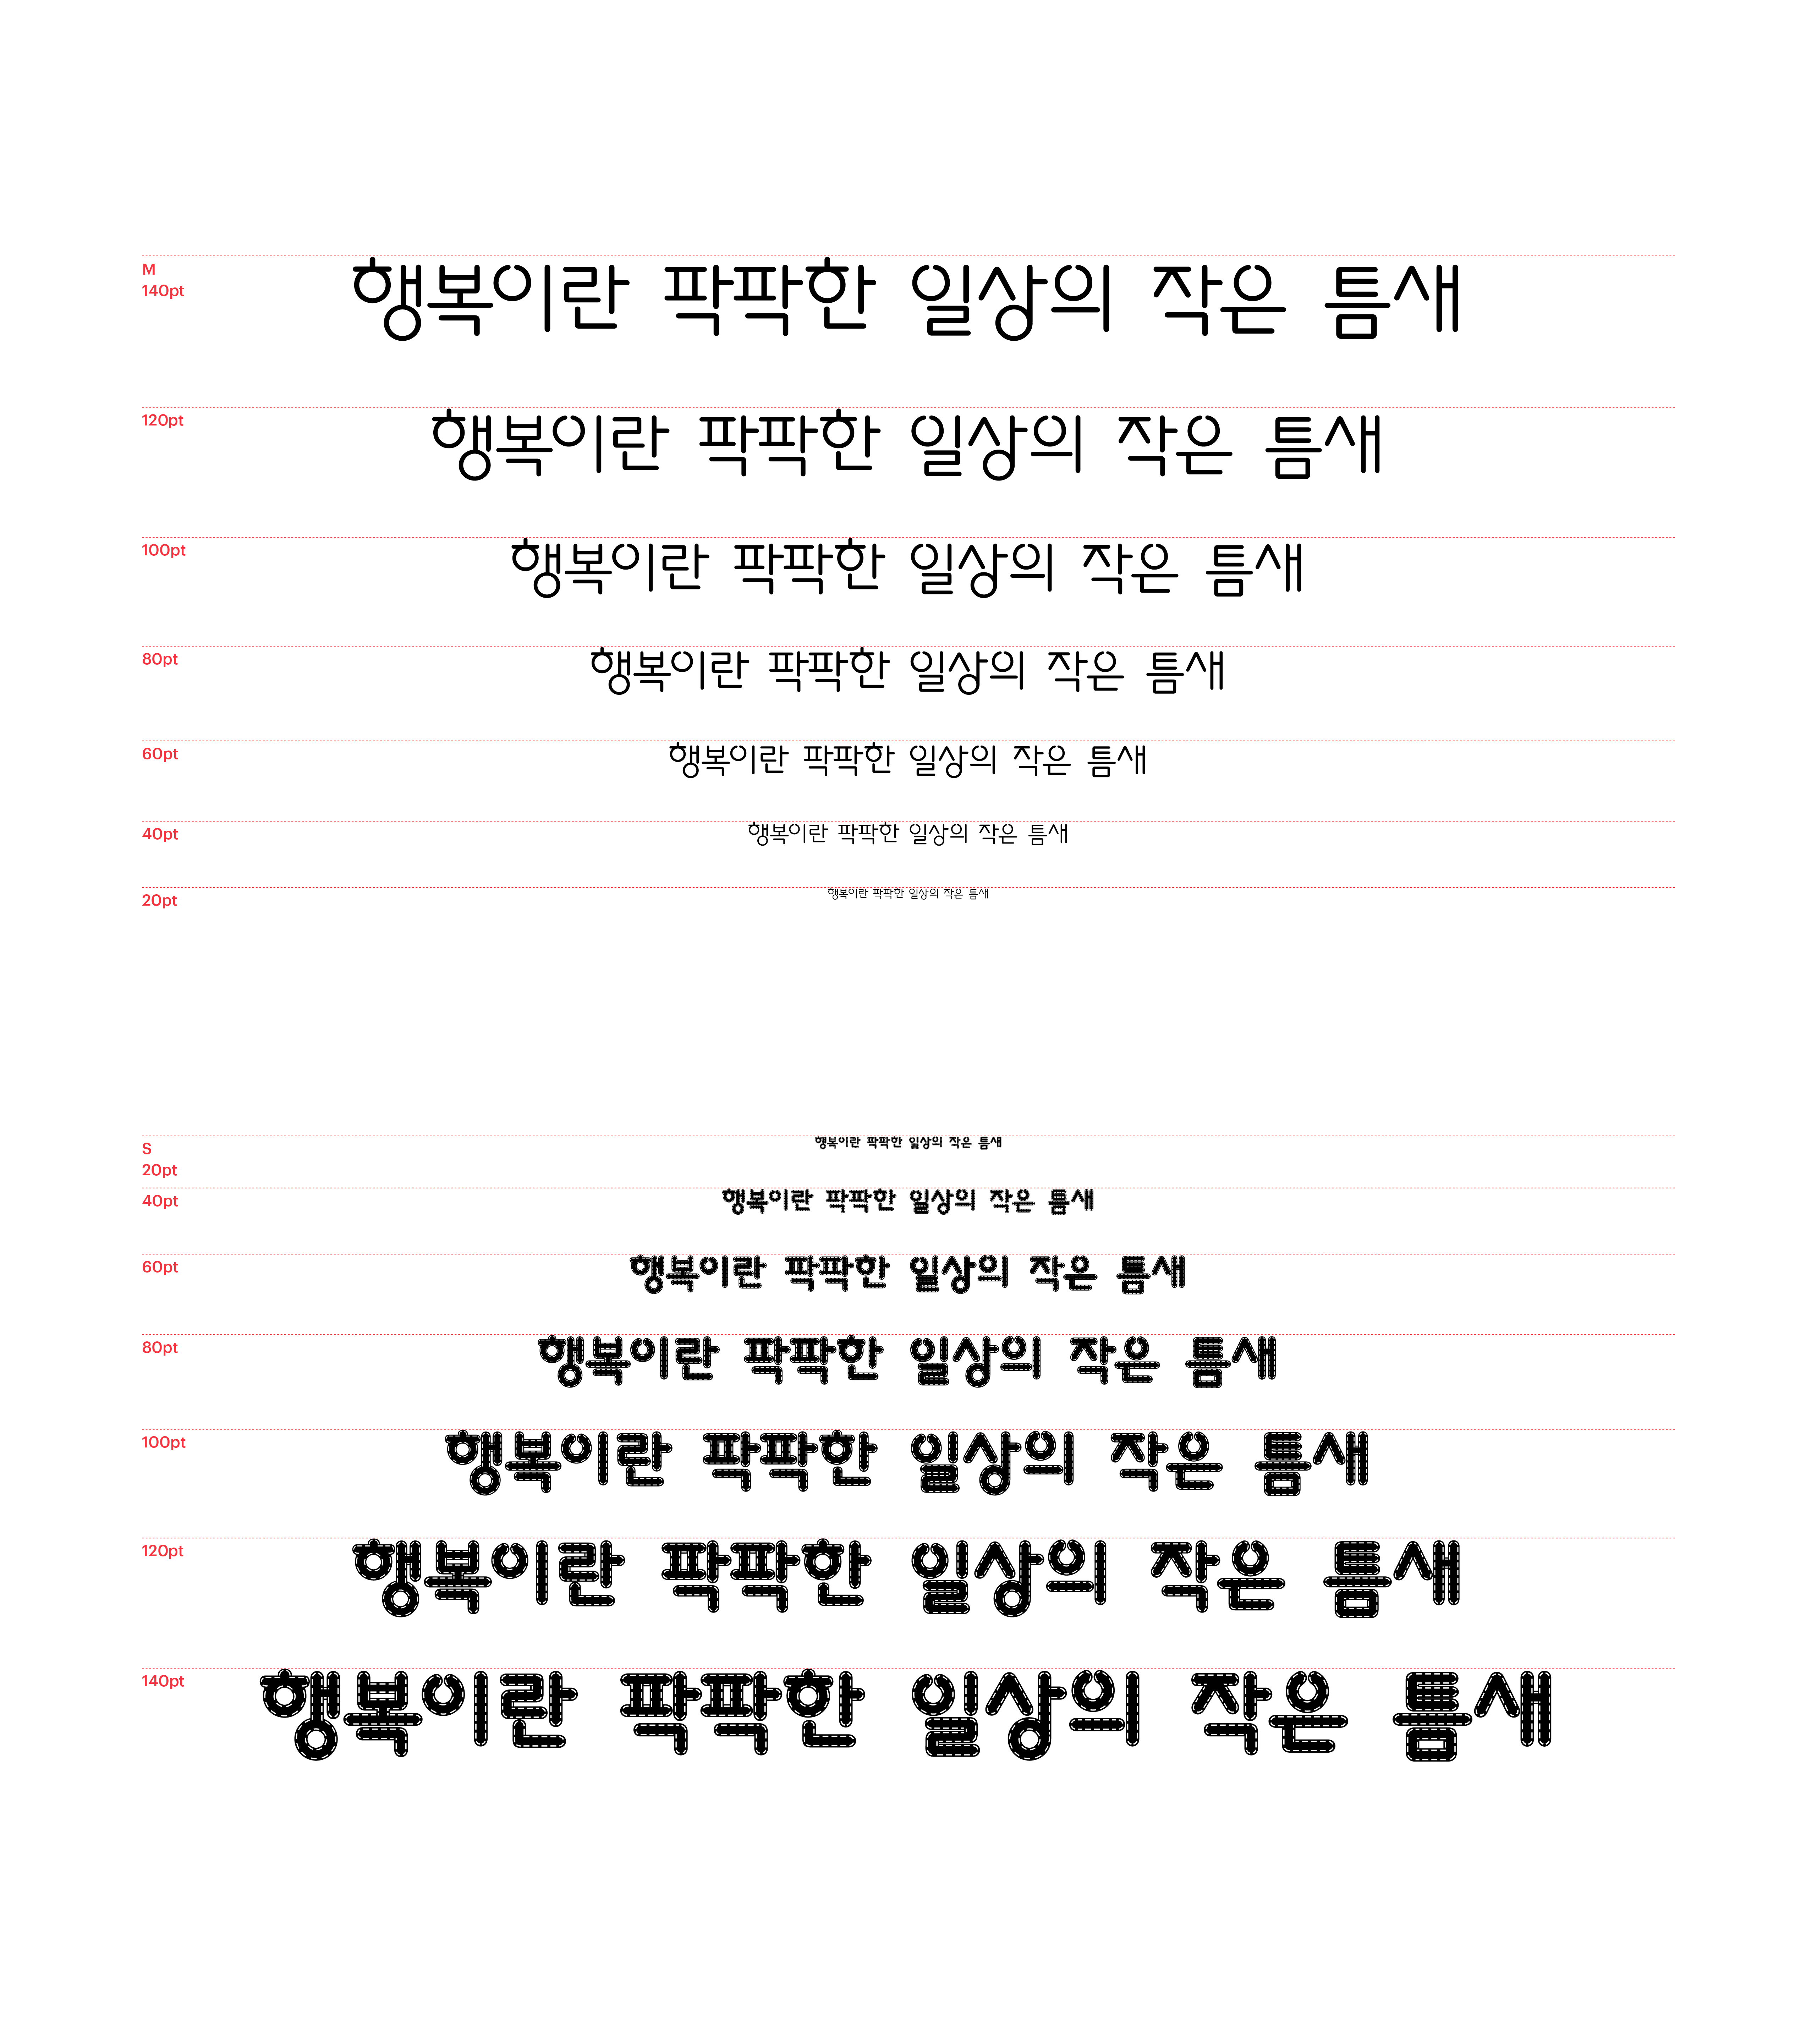 M
140pt
행복이란 팍팍한 일상의 작은 틈새
120pt
행복이란 팍팍한 일상의 작은 틈새
100pt
행복이란 팍팍한 일상의 작은 틈새
80pt
행복이란 팍팍한 일상의 작은 틈새
60pt
행복이란 팍팍한 일상의 작은 틈새
40pt
행복이란 팍팍한 일상의 작은 틈새
20pt
행복이란 팍팍한 일상의 작은 틈새
S
20pt
행복이란 팍팍한 일상의 작은 틈새
40pt
행복이란 팍팍한 일상의 작은 틈새
60pt
행복이란 팍팍한 일상의 작은 틈새
80pt
행복이란 팍팍한 일상의 작은 틈새
100pt
행복이란 팍팍한 일상의 작은 틈새
120pt
행복이란 팍팍한 일상의 작은 틈새
140pt
행복이란 팍팍한 일상의 작은 틈새